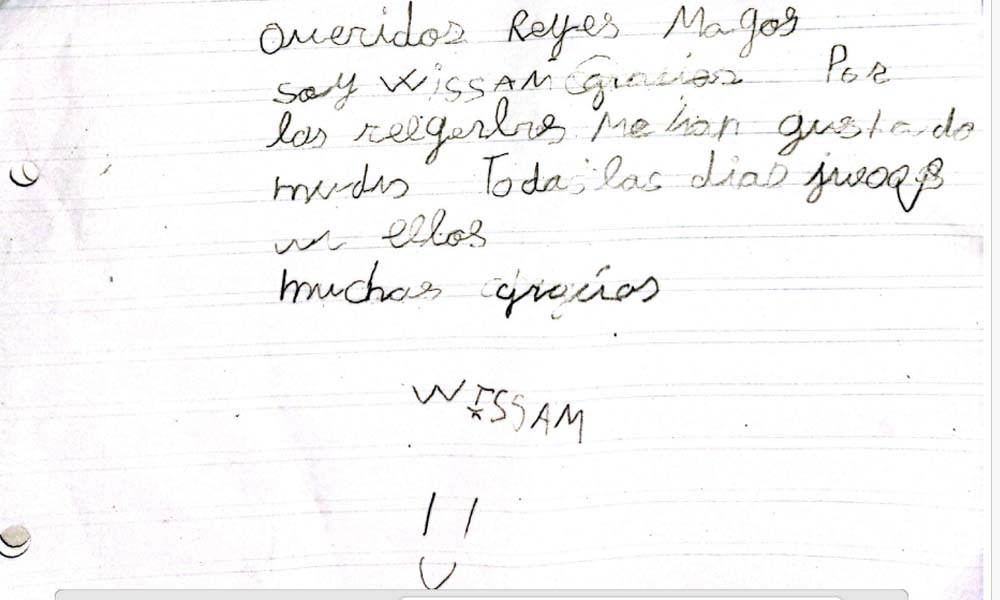 Queridos Reyes Magos
soy WissAM Gracias Por
los reegarlos Me han gustado
muchos Todas las dias juoogs
ellos
muchas gracias
WISSAM